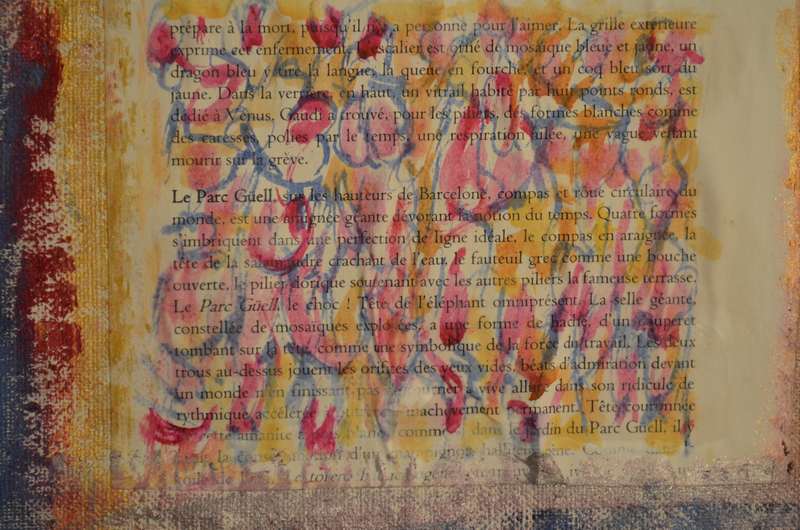 prépare à la mort, puisqu'il n'y a personne pour l'aimer. La grille extérieure
exprime cet enfermement, l'escalier est orné de mosaïque bleue et jaune, un
dragon bleu y tire la langue, la queue en fourche, et un coq bleu sort du
jaune. Dans la verrière, en haut, un vitrail habité par huit points ronds, est
dédié à Vénus. Gaudi a trouvé, pour les piliers, des formes blanches comme
des caresses, polies par le temps, une respiration hâlée, une vague venant
mourir sur la grève.
Le Parc Güell, sur les hauteurs de Barcelone, compas et roue circulaire du
monde, est une araignée géante dévorant la notion du temps. Quatre formes
s'imbriquent dans une perfection de ligne idéale, le compas en araignée, la
tête de la salamandre crachant de l'eau, le fauteuil grec comme une bouche
ouverte, le pilier dorique soutenant avec les autres piliers la fameuse terrasse.
Le Parc Güell, le choc ! Tête de l'éléphant omniprésent. La selle géante,
constellée de mosaïques explosées, a une forme de hache, d'un couperet
tombant sur la tête, comme une symbolique de la force du travail. Les deux
trous au-dessus jouent les orifices des yeux vides, béats d'admiration devant
un monde n'en finissant pas tourner à vive allure dans son ridicule de
rythmique accélérée machèvement permanent. Tête couronnée
cette amanite à blanc comme dans le jardin du Parc Güell, il y
d'un champignon hallucinogène. Comme